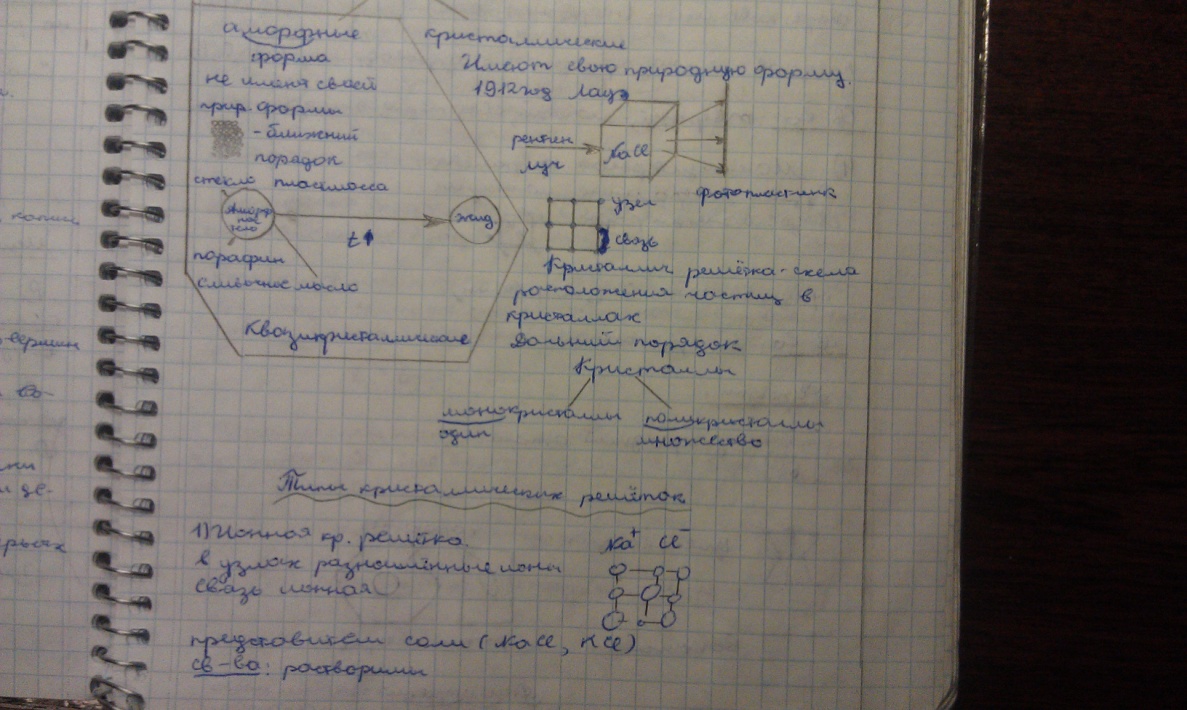 аморфные
форма
не имеют своей
прир. формы
- ближний
порядок
стекло пластмасса
Аморф
ное
тело
t↑
жид
парафин
сливочное масло
Квазикристаллические
кристаллические
Имеют свою природную форму.
1912 год Лауэ
рентген
луч
NaCl
фотопластинк
узел
связь
Кристаллич решётка - схема
расположения частиц в
кристаллах
Дальний порядок
Кристаллы
монокристаллы поликристаллы
один множество
Типы кристаллических решёток
1) Ионная кр. решётка
Na⁺ Cl⁻
в узлах разноимённые ионы
Связь ионная
представители соли (NaCl, KCl)
св-ва: растворимы